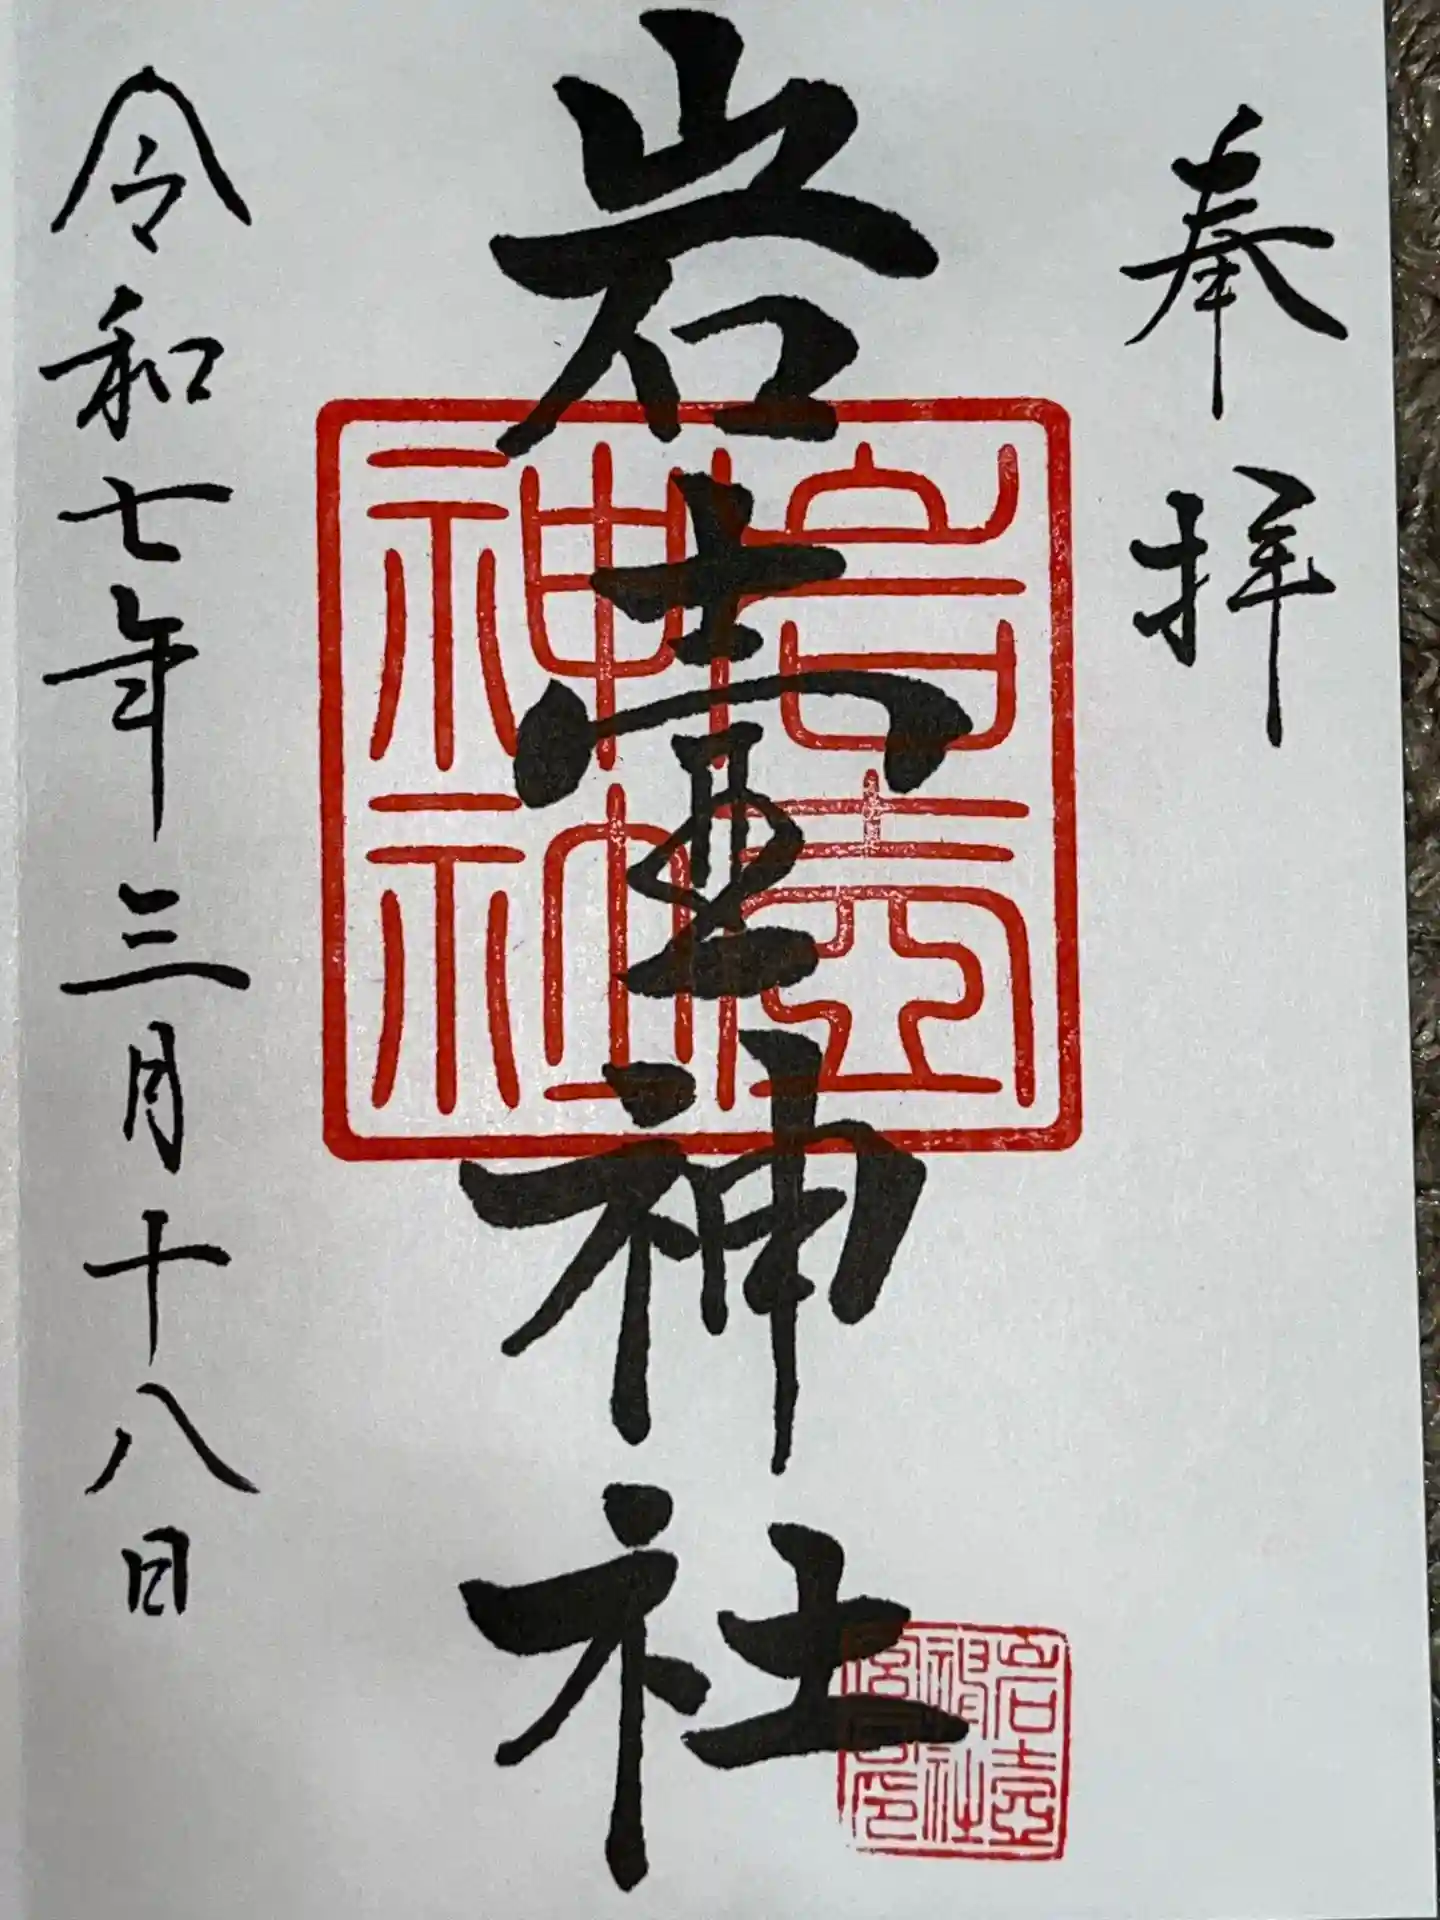 奉拝
岩壺神社
令和七年三月十八日
岩壺
神社
岩壺
神社
宮司印